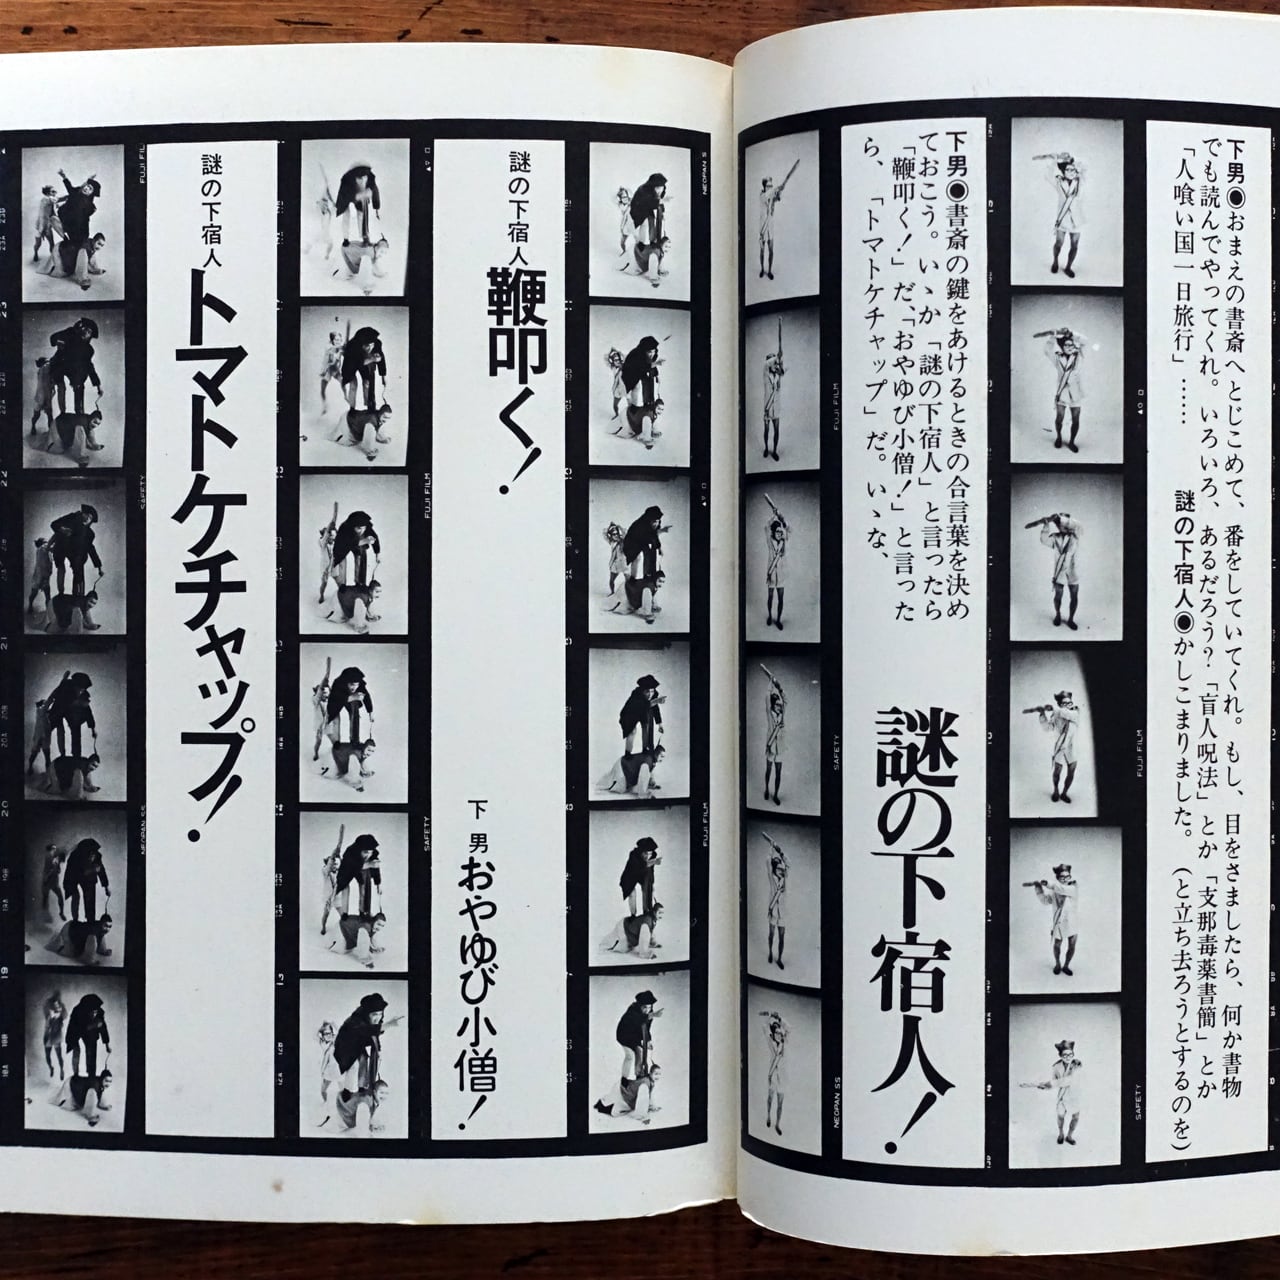 下男◉おまえの書斎へとじこめて、番をしていてくれ。もし、目をさましたら、何か書物
でも読んでやってくれ。いろいろ、あるだろう?「盲人呪法」とか「支那毒薬書簡」とか
「人喰い国一日旅行」……
謎の下宿人◉かしこまりました。(と立ち去ろうとするのを)
下男◉書斎の鍵をあけるときの合言葉を決め
ておこう。いゝか「謎の下宿人」と言ったら
「鞭叩く!」だ、「おやゆび小僧!」と言った
ら、「トマトケチャップ」だ。いゝな、
謎の下宿人!
謎の下宿人
鞭叩く!
下男
おやゆび小僧!
謎の下宿人
トマトケチャップ!
FUJI FILM
SAFETY
NEOPAN SS
FUJI FILM
SAFETY
NEOPAN S
FUJI FILM
FUJI FILM
SAFETY
NEOPAN SS
FUJI FILM
SAFETY
23
22
21
20
19